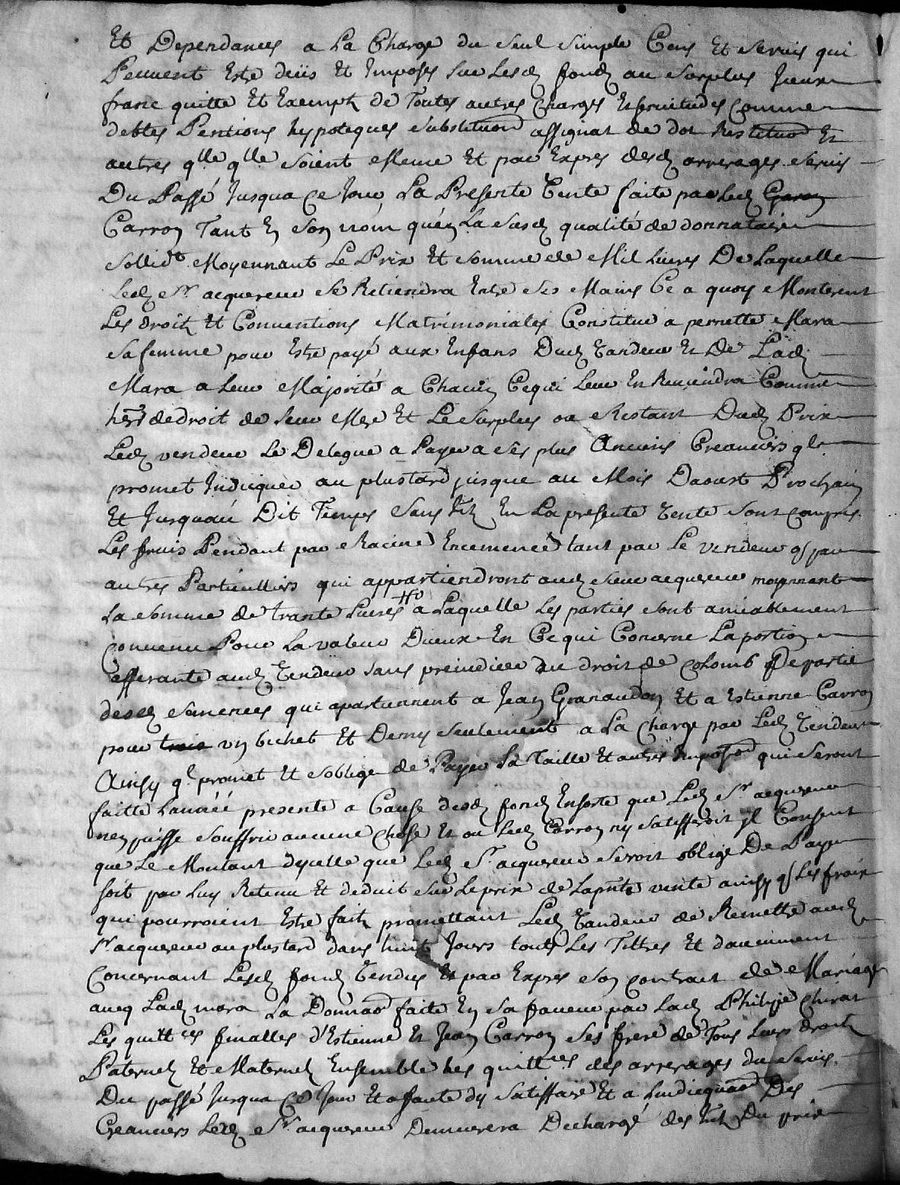 Et Dependances a La Charge du seul simple Cens Et Servis qui
Peuvent Estre deüs Et Imposés sur Lesd fonds au Surplus Iceux
franc quitte Et Exempt de Toutes autres Charges Esservitudes Comme
debtes Pentions hypoteques Substituon assignat de dot Restituon Et
autres qlle qlle soient Meme Et par Expres desd arrerages Servis
Du Passé Jusqua Ce Jour La Presente Vente faite par Led
Carron Tant En Son nom quén La susd qualité de donnataire
Sollidt Moyennant Le Prix Et Somme de Mil Livres De Laquelle
Led Sr acquereur Se Retiendra Entre Ses Mains Ce a quoy Monteront
Les droits Et Conventions Matrimoniales Constitué a pernette Mara
Sa femme pour Estre payé aux Enfans Dud Vandeur Et De Lad
Mara a Leur Majorité a Chacun Cequi Leur En Reviendra Comme
hers de droit de Leur Mere Et Le Surplus ou Restant Dud Prix
Led vendeur Le Delegue a Payer a Ses plus Anciens Creanciers ql
promet Indiquer au plustard jusque au Mois Daoust Prochain
Et Jusquau Dit Temps Sans Int En La presente Vente Sont Compris
Les fruis Pendant par Racine Encemencé tant par Le vendeur q par
autres Particulliers qui appartiendront aud Sieur acquereur moyennant
La Somme de trante Livres a Laquelle Les parties Sont amiablement
Convenu Pour La valeur Diceux En Cequi Concerne La portion
afferante aud Vendeur sans preiudice du droit de Colomb De partie
desd Semences qui apartiennent a Jean Granaudon Et a Estienne Carron
pour vn bichet Et Demy Seulement a La Charge par Led Vendeur
Ainsy ql promet Et Soblige de Payer La Taille Et autres Imposon qui Seront
faitte Lanneé presente a Cause desd fonds Ensorte que Led Sr acquereur
nen puisse Souffrir aucune Chose Et ou Led Carron ny Satifferoit Il Consent
que Le Montant dycelle que Led Sr acquereur Seroit obligé De Payer
soit par Luy Retenu Et deduit Sur Le prix de Lapnte vente ainsy q Les fraix
qui pourroient Estre fait promettant Led Vandeur de Remettre aud
Sr acquereur au plustard dans huit Jours touts Les Tiltres Et document
Concernant Lesd fonds Vendus Et par Expres Son Contract de Mariage
aveq Lad mara La Donnaon faite En Sa faveur par Lad Philipe Chirat
Les quittces finalles d'Estienne Et Jean Carron Ses frere de Tous Leurs droits
Paternels Et Maternels Ensemble Les quittces des arrerages du Servis
Du passé Jusqua Ce Jour Et a faute dy Satiffaire Et a Lindicquaon Des
Creanciers Led Sr acquereur Demeurera Dechargé des Int Du prix